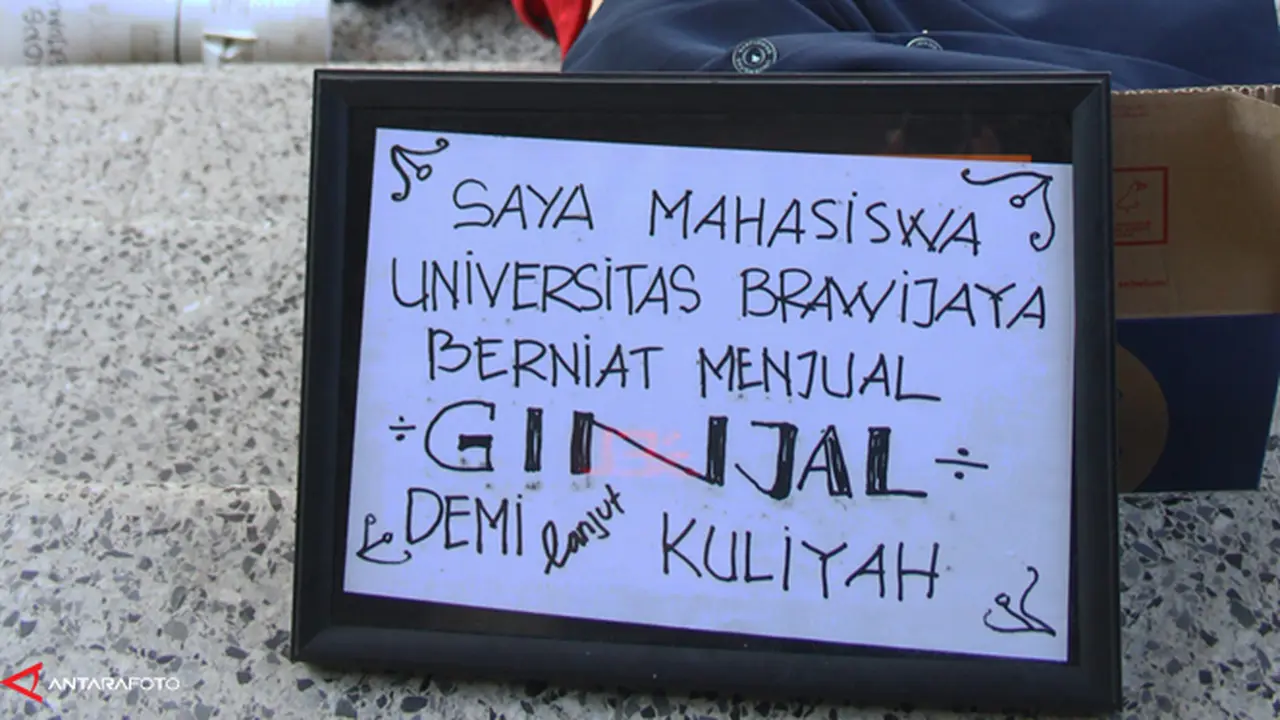 SAYA MAHASISWA
UNIVERSITAS BRAWIJAYA
BERNIAT MENJUAL
÷ GINJAL ÷
DEMI lanjut KULIYAH
ANTARAFOTO